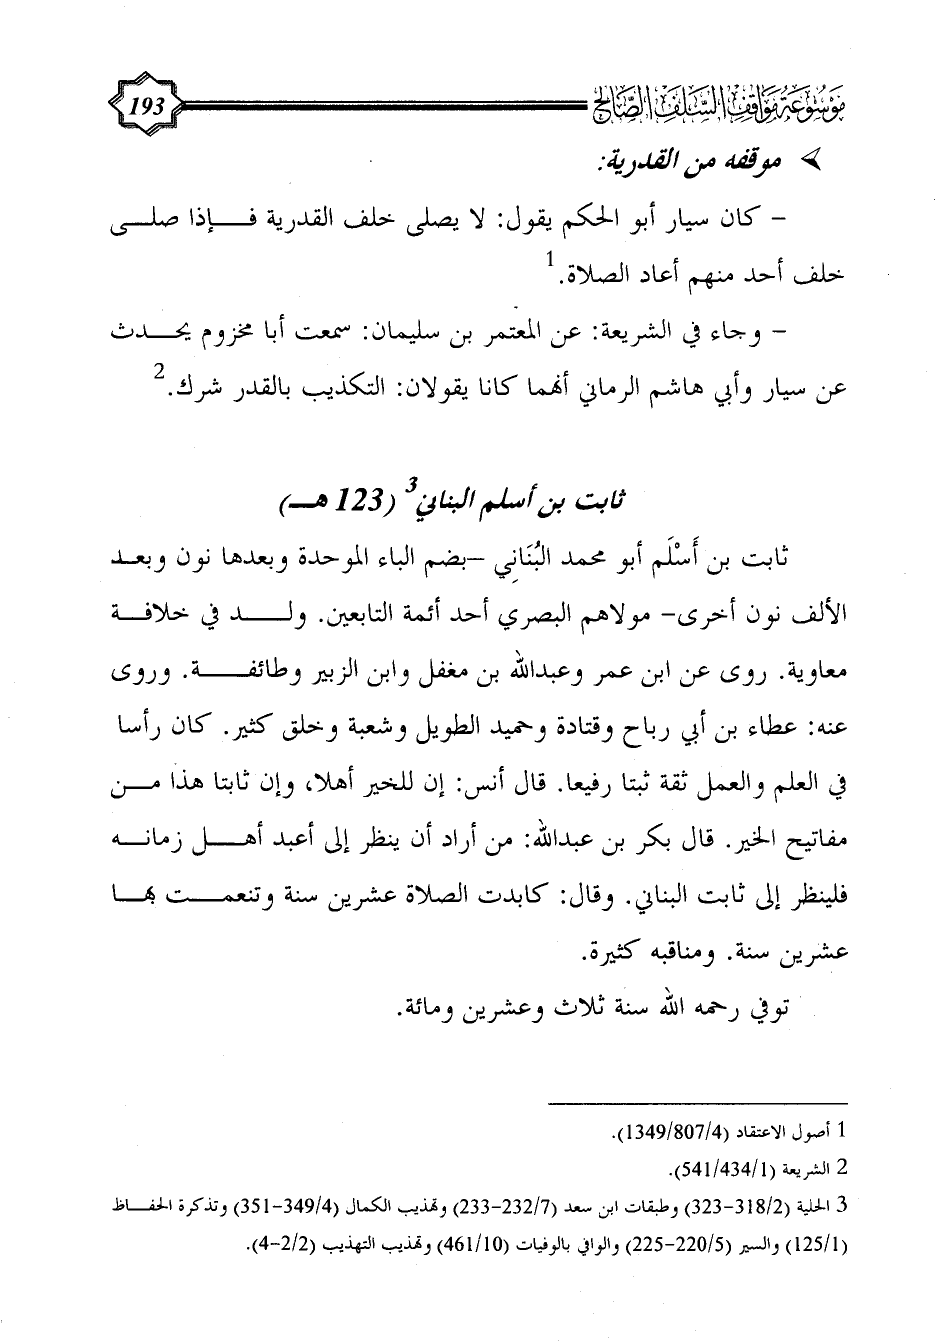 موسوعة مواقف السلف الصالح
193
موقفه من القدرية:
- كان سيار أبو الحكم يقول: لا يصلى خلف القدرية فإذا صلى
خلف أحد منهم أعاد الصلاة.1
- وجاء في الشريعة: عن المعتمر بن سليمان: سمعت أبا مخزوم يحدث
عن سيار وأبي هاشم الرماني أنهما كانا يقولان: التكذيب بالقدر شرك.2
ثابت بن أسلم البناني3 (123 هـ)
ثابت بن أَسْلَم أبو محمد البُنَاني -بضم الباء الموحدة وبعدها نون وبعد
الألف نون أخرى- مولاهم البصري أحد أئمة التابعين. ولد في خلافة
معاوية. روى عن ابن عمر وعبدالله بن مغفل وابن الزبير وطائفة. وروى
عنه: عطاء بن أبي رباح وقتادة وحميد الطويل وشعبة وخلق كثير. كان رأسا
في العلم والعمل ثقة ثبتا رفيعا. قال أنس: إن للخير أهلا، وإن ثابتا هذا من
مفاتيح الخير. قال بكر بن عبدالله: من أراد أن ينظر إلى أعبد أهل زمانه
فلينظر إلى ثابت البناني. وقال: كابدت الصلاة عشرين سنة وتنعمت بها
عشرين سنة. ومناقبه كثيرة.
توفي رحمه الله سنة ثلاث وعشرين ومائة.
1 أصول الاعتقاد (1349/807/4).
2 الشريعة (541/434/1).
3 الحلية (318/2-323) وطبقات ابن سعد (232/7-233) وتهذيب الكمال (349/4-351) وتذكرة الحفاظ
(125/1) والسير (220/5-225) والوافي بالوفيات (461/10) وتهذيب التهذيب (2/2-4).